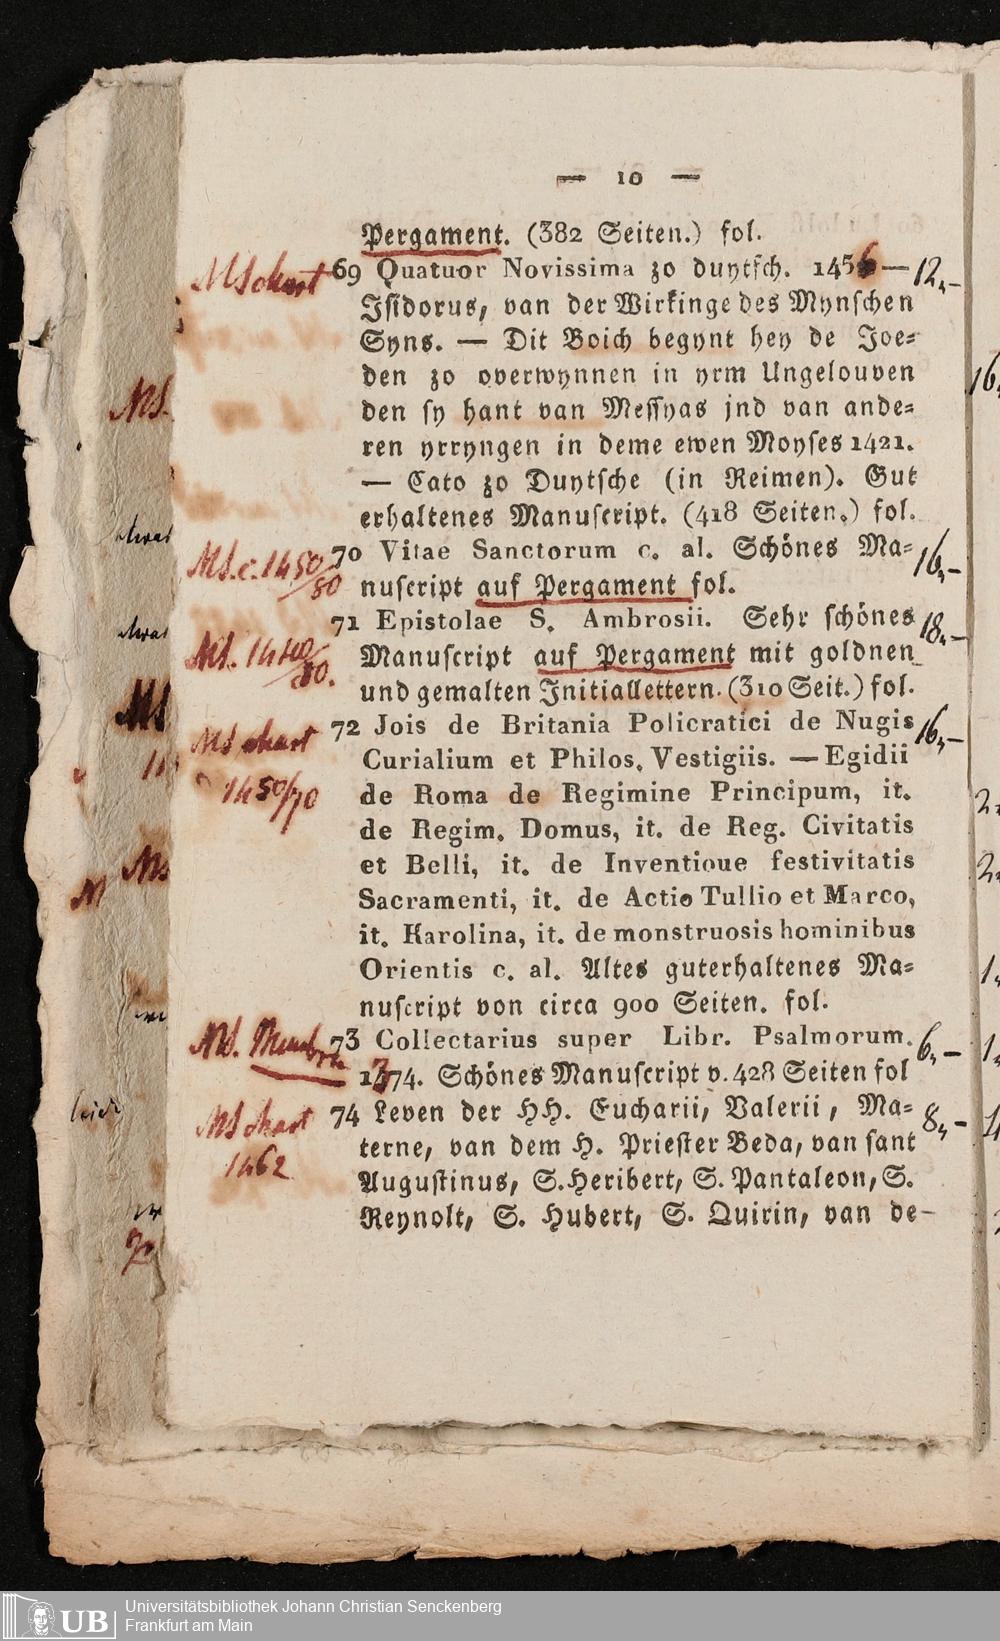 — 10 —
Pergament. (382 Seiten.) fol.
MS chart 69 Quatuor Novissima zo duytsch. 1456 — 12,-
Isidorus, van der Wirkinge des Mynschen
Syns. — Dit Boich begynt hey de Joe=
den zo overwynnen in yrm Ungelouven
den sy hant van Messyas jnd van ande=
ren yrryngen in deme ewen Moyses 1421.
— Cato zo Duytsche (in Reimen). Gut
erhaltenes Manuscript. (418 Seiten.) fol.
MS. c. 1450/80 70 Vitae Sanctorum c. al. Schönes Ma= 16,-
nuscript auf Pergament fol.
71 Epistolae S. Ambrosii. Sehr schönes 18,-
MS. 1440/80. Manuscript auf Pergament mit goldnen
und gemalten Initiallettern. (310 Seit.) fol.
MS chart 72 Jois de Britania Policratici de Nugis 16,-
Curialium et Philos. Vestigiis. — Egidii
1450/70 de Roma de Regimine Principum, it.
de Regim. Domus, it. de Reg. Civitatis
et Belli, it. de Inventioue festivitatis
Sacramenti, it. de Actio Tullio et Marco,
it. Karolina, it. de monstruosis hominibus
Orientis c. al. Altes guterhaltenes Ma=
nuscript von circa 900 Seiten. fol.
MS. Membr. 73 Collectarius super Libr. Psalmorum. 6,-
1374. Schönes Manuscript v. 428 Seiten fol
MS chart 74 Leven der HH. Eucharii, Valerii, Ma= 8,-
1462 terne, van dem H. Priester Beda, van sant
Augustinus, S. Heribert, S. Pantaleon, S.
Reynolt, S. Hubert, S. Quirin, van de-
MS.
etwas
etwas
MS
Ms
M
16,
UB Universitätsbibliothek Johann Christian Senckenberg
Frankfurt am Main